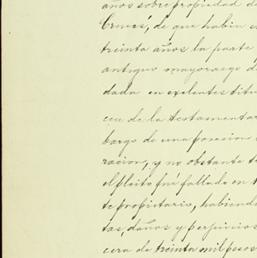 años sobre propiedad d
Cruces, de que habia s
treinta años la parte
antiguo mayorazgo d
dada en exelentes titu
cou de la testamentar
bargo de una posesion
racion, y no obstante t
el pleito fué fallado en
te propietario, habiend
tas, daños y perjuicios
cera de treinta mil pesos